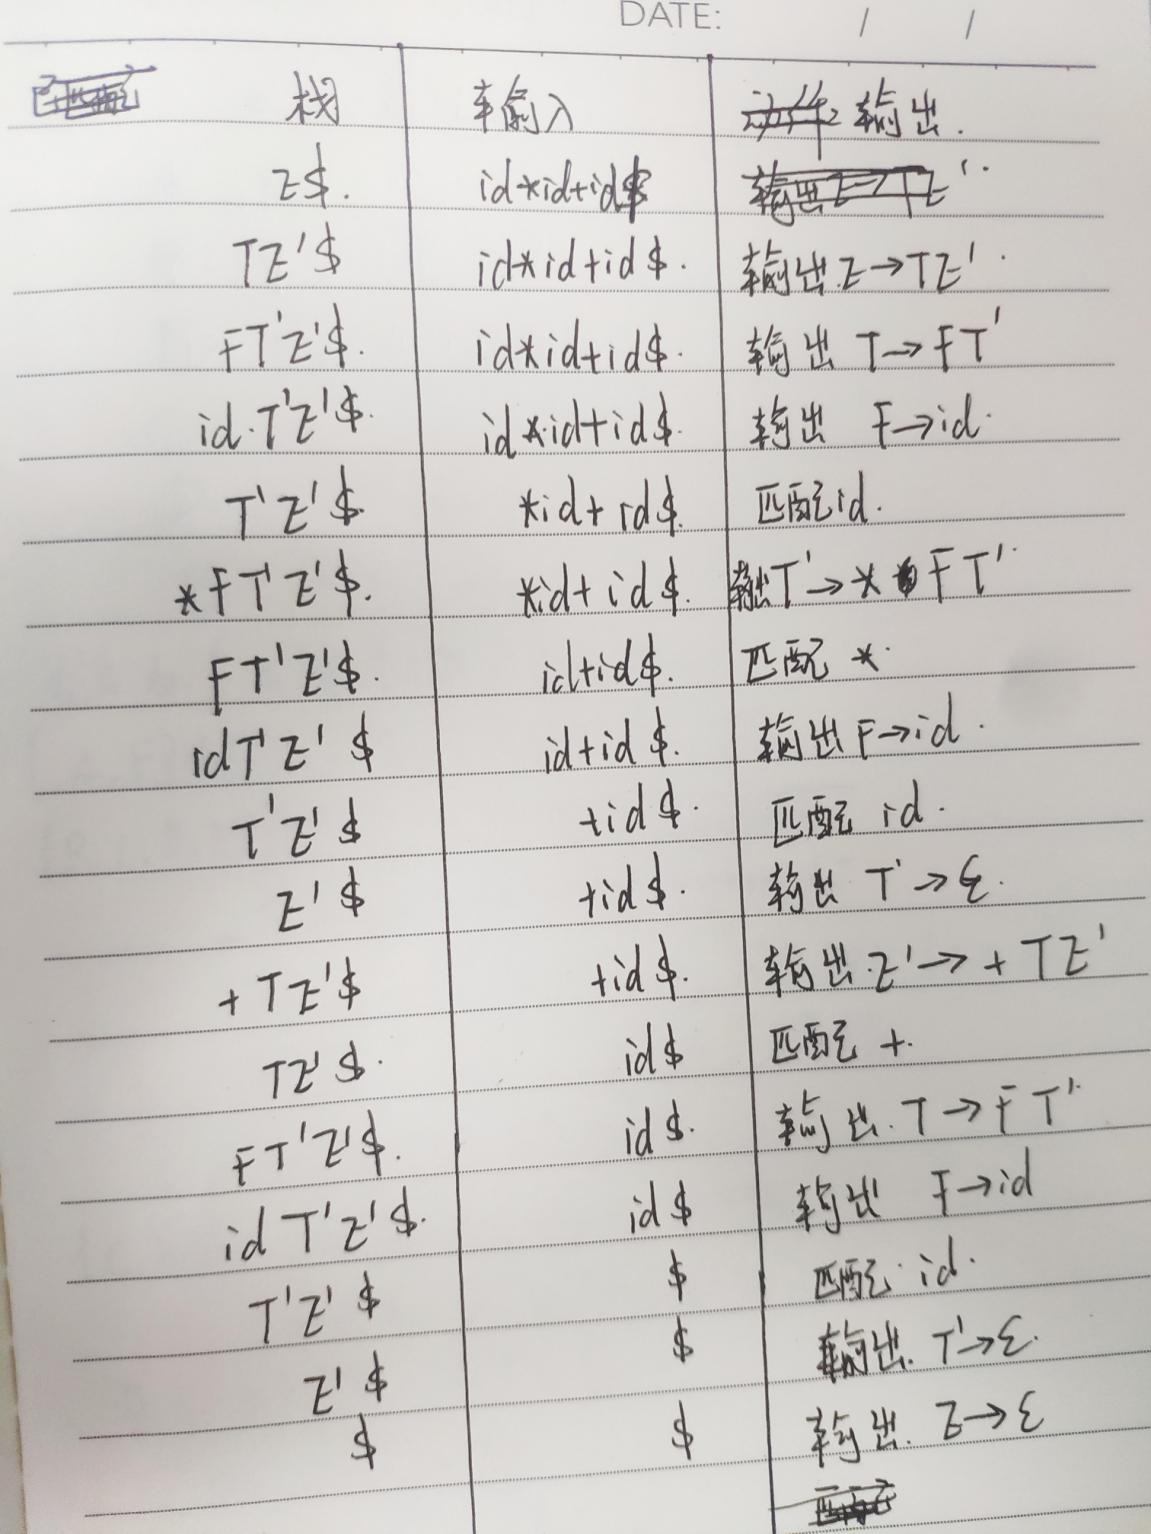 DATE: / /
栈 输入 输出.
Z$. id*id+id$
TZ'$ id*id+id$. 输出Z→TZ'.
FT'Z'$. id*id+id$. 输出 T→FT'
id.T'Z'$. id*id+id$. 输出 F→id.
T'Z'$. *id+id$. 匹配id.
*FT'Z'$. *id+id$. 输出T'→*FT'.
FT'Z'$. id+id$. 匹配 *.
idT'Z'$ id+id$. 输出F→id.
T'Z'$ +id$. 匹配 id.
Z'$ +id$. 输出 T'→ε.
+TZ'$ +id$. 输出.Z'→+TZ'
TZ'$. id$ 匹配 +.
FT'Z'$. id$. 输出.T→FT'.
id T'Z'$. id$ 输出 F→id
T'Z'$ $ 匹配.id.
Z'$ $ 输出.T'→ε.
$ $ 输出.Z→ε